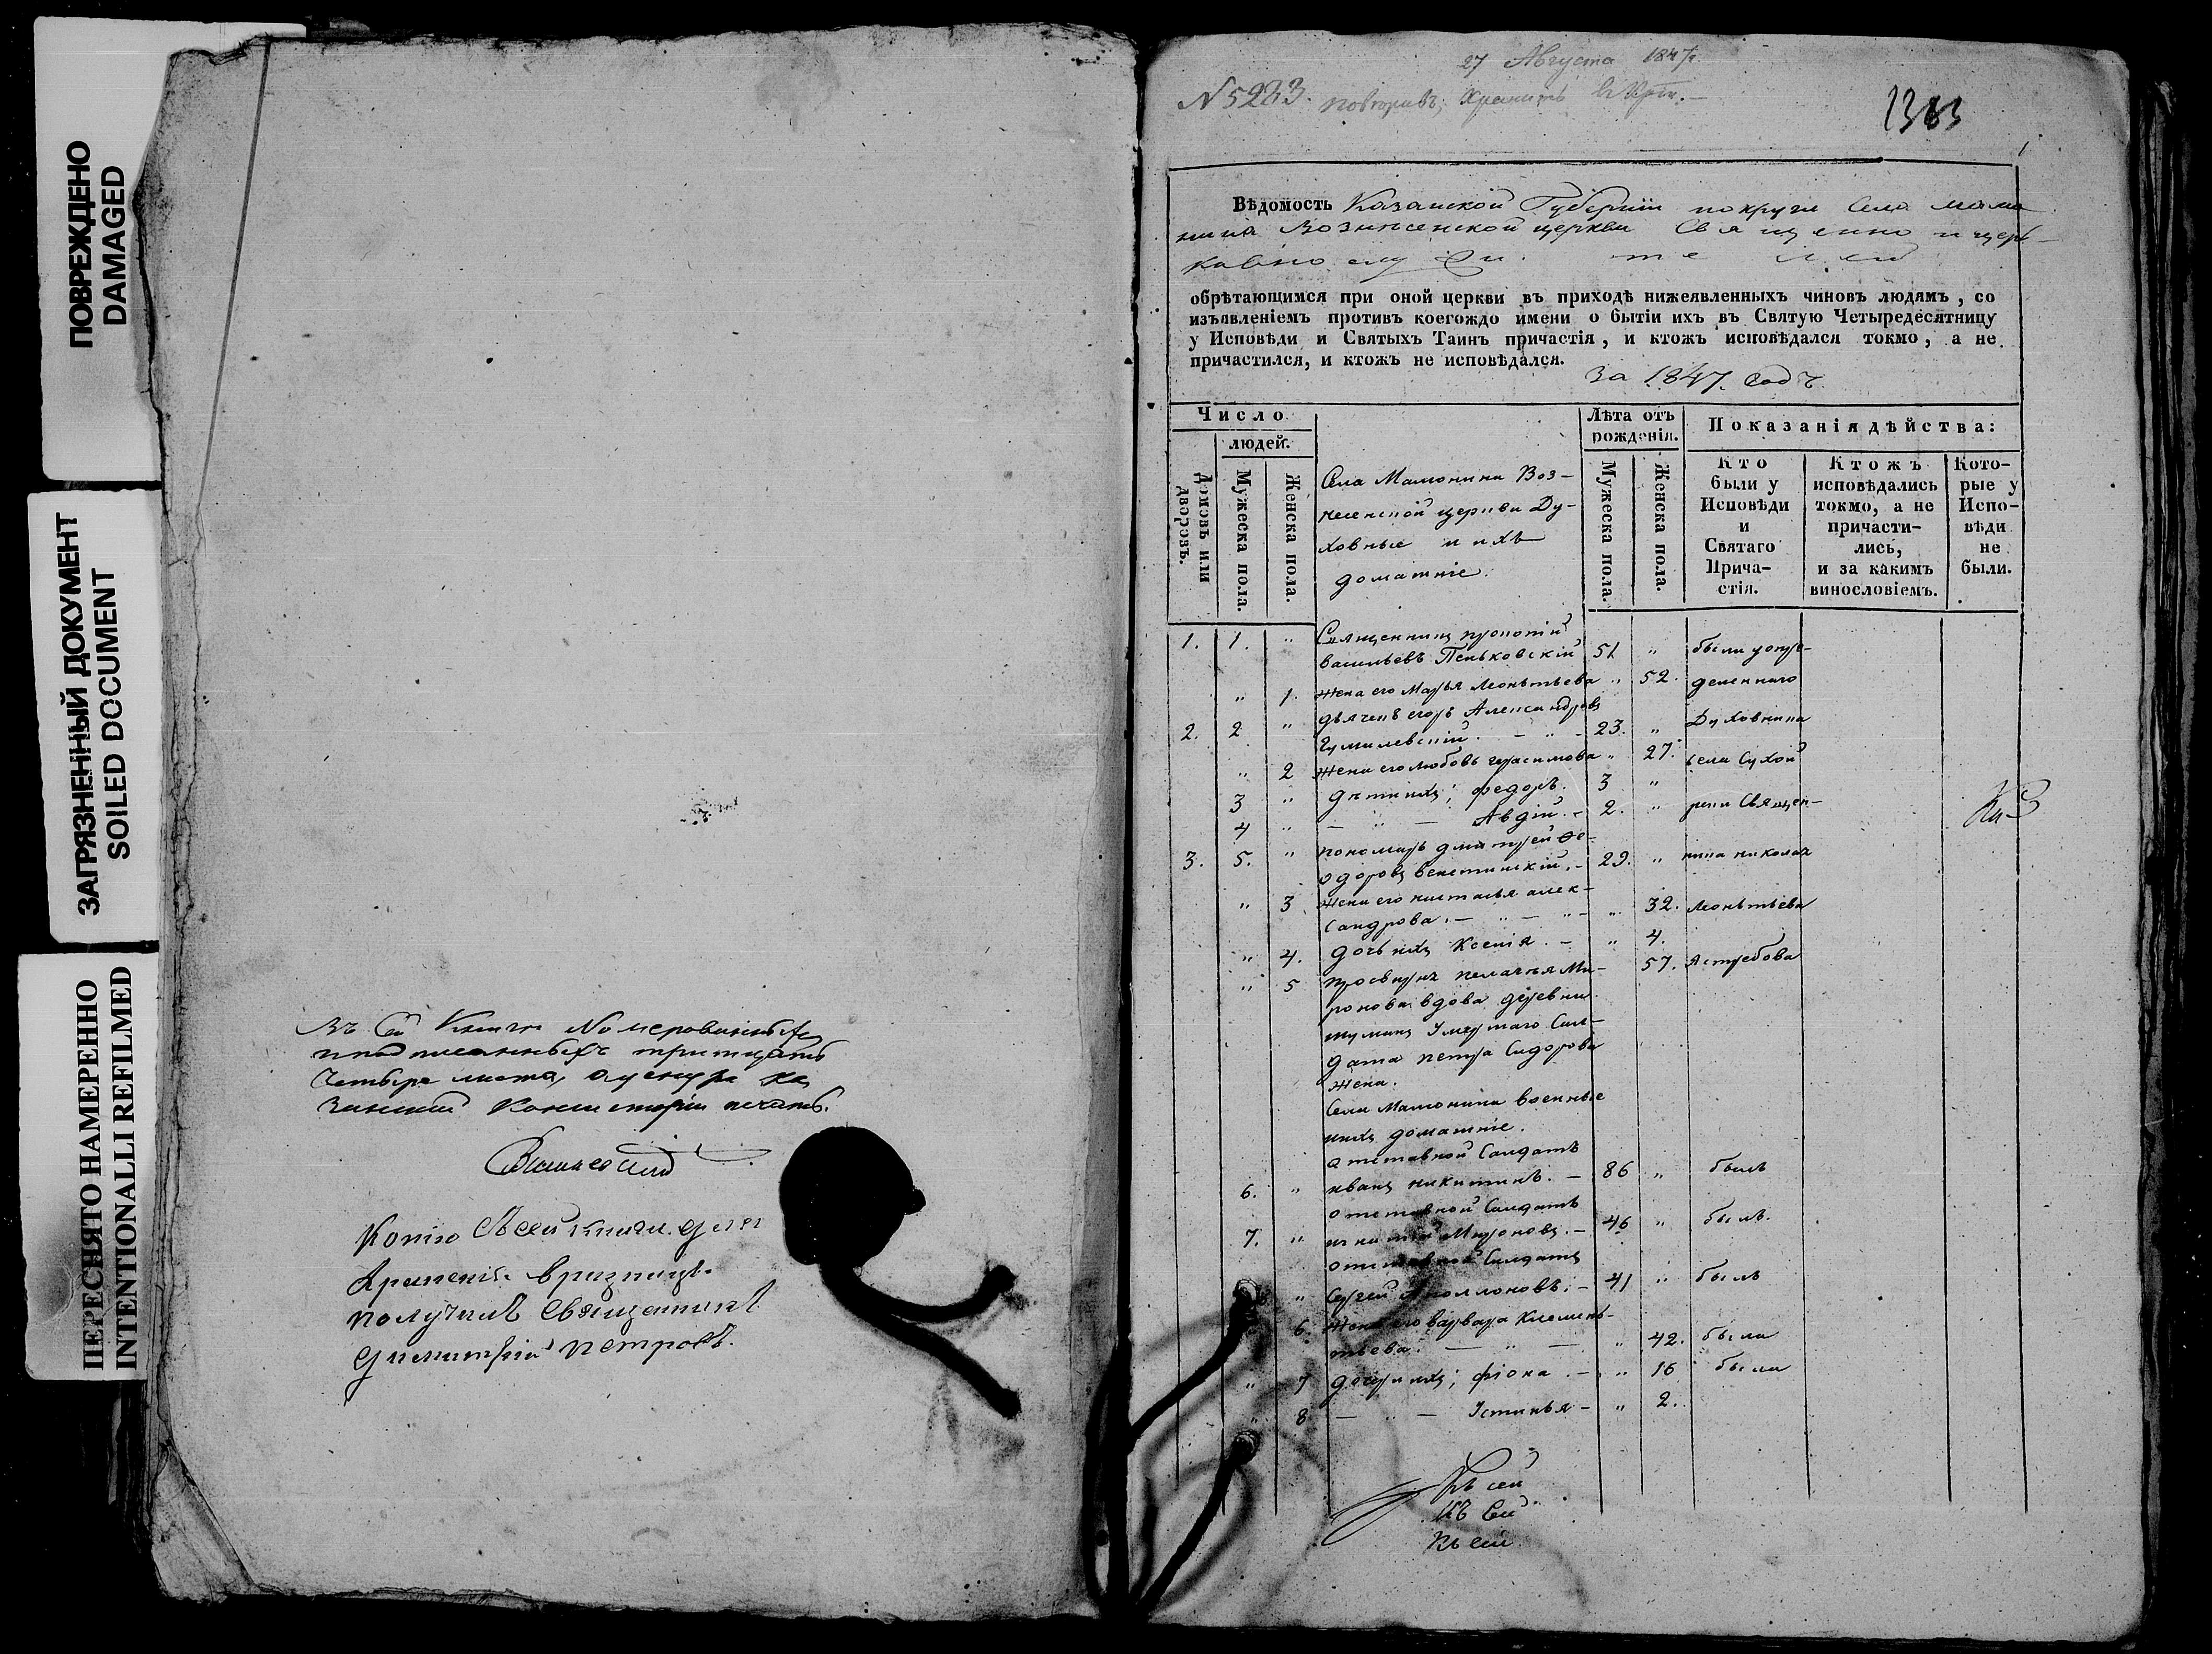 ПОВРЕЖДЕНО
DAMAGED
ЗАГРЯЗНЕННЫЙ ДОКУМЕНТ
SOILED DOCUMENT
ПЕРЕСНЯТО НАМЕРЕННО
INTENTIONALLI REFILMED
Въ Сей Книге Номерованныхъ
и подписанныхъ тритцать
Четыре листа,
Консисторіи печать.
Копію Съ сей книги для
Храненія в ризницѣ
получилъ Священникъ
Димитрій Петровъ.
27 Августа 1847.
N 5233. хранить
1363
Вѣдомость Казанской Губерніи округи Села Мамо
нина Вознесенской церкви Священно и цер-
ковно служителей
обрѣтающимся при оной церкви въ приходѣ нижеявленныхъ чиновъ людямъ, со
изъявленіемъ противъ коегождо имени о бытіи ихъ въ Святую Четыредесятницу
у Исповѣди и Святыхъ Таинъ причастія, и ктожъ исповѣдался токмо, а не
причастился, и ктожъ не исповѣдался.
За 1847. Годъ
Число
людей.
Домовъ или дворовъ.
Мужеска пола.
Женска пола.
Села Мамонина Воз-
несенской церкви Ду-
ховные и ихъ
домашніе.
Лѣта отъ
рожденія.
Мужеска пола.
Женска пола.
Показанія дѣйства:
Кто
были у
Исповѣди
и
Святаго
Прича-
стія.
Ктожъ
исповѣдались
токмо, а не
причасти-
лись,
и за какимъ
винословіемъ.
Кото-
рые у
Испо-
вѣди
не
были.
1. 1. " Священникъ Прокопій
Васильевъ Пеньковскій 51 " были у опре-
" 1. Жена его Марья Леонтьева " 52. деленнаго
2. 2 " дьячекъ егоръ Александровъ
Гумилевскій. 23. " Духовника
" 2 Жена его Любовь Герасимова " 27. села Сухой
3 " дѣти ихъ; федоръ. 3 "
4 " — " — Авдій. - 2. " реки Священ-
3. 5. " пономарь дмитрей фе-
одоровъ 29. " ника николая
" 3 Жена его наталья алек-
сандрова. — " — " 32. Леонтьева
" 4. дочь ихъ Ксенія. — " 4.
" 5 просвирня пелагея Ми- 57. Ястребова
ронова вдова деревни
умершаго Сол-
дата петра Сидорова
жена.
Села Мамонина военные
ихъ домашніе.
отставной Салдатъ
6. " иванъ никитинъ. — 86 " былъ
отставной Салдатъ
7. " никита Мироновъ. — 46 " былъ.
отставной Салдатъ
" Сергей Аполлоновъ. — 41 " былъ
6. Жена его варвара Климен-
тьева. — " — " 42. была
" 7 дочери ихъ; фіона. — " 16 была
" 8 — " — Устинья — " 2.
Къ сей
Къ Сей
Къ сей